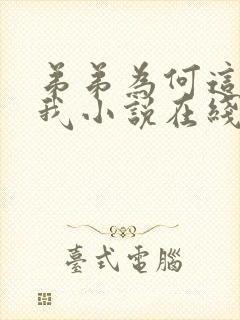 弟弟為何這
我小說在綫
臺式電腦